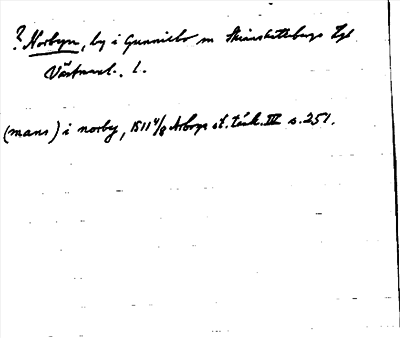 ? Norbyn, by i Gunnilbo sn Skinnskattebergs hd
Västmanl. l.
(mans) i norby, 1511 4/8 Arboga st. tänk. III s. 251.